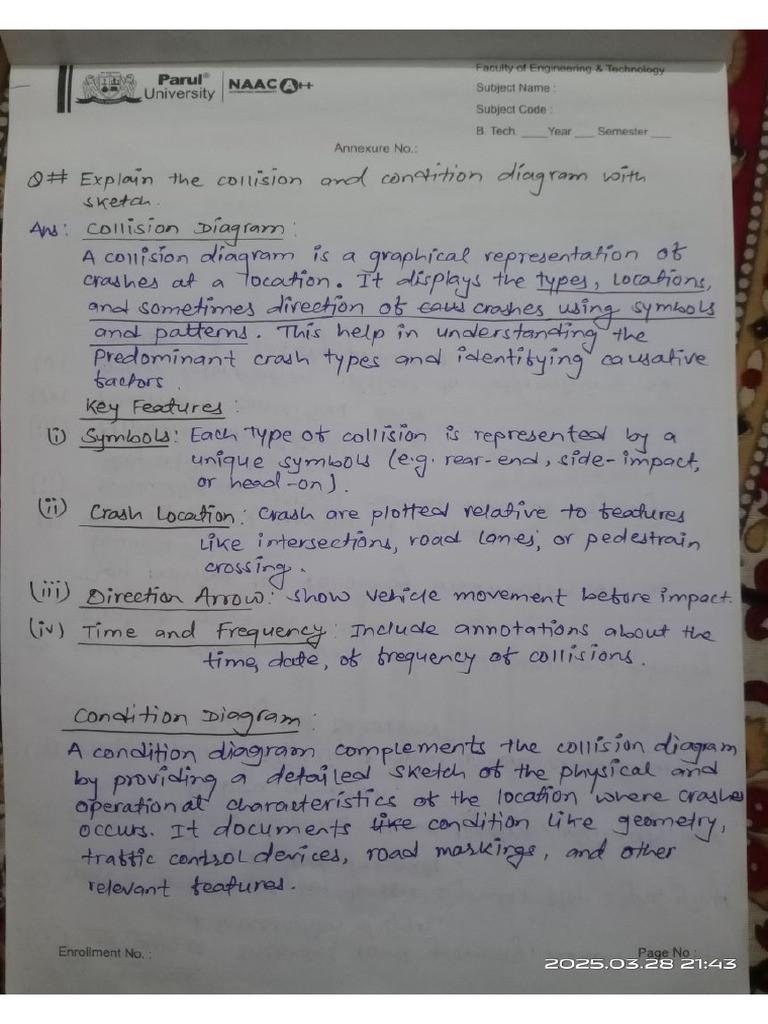 Parul® University NAAC A++
Faculty of Engineering & Technology
Subject Name :
Subject Code :
B. Tech ____Year ___ Semester ___
Annexure No.:
Q## Explain the collision and condition diagram with
sketch.
Ans: Collision Diagram:
A collision diagram is a graphical representation of
crashes at a location. It displays the types, locations,
and sometimes direction of crashes using symbols
and patterns. This help in understanding the
Predominant crash types and identifying causative
factors.
Key Features:
(i) Symbols: Each type of collision is represented by a
unique symbols (e.g. rear-end, side-impact,
or head-on).
(ii) Crash Location: Crash are plotted relative to features
like intersections, road lanes, or pedestrain
crossing.
(iii) Direction Arrow: show vehicle movement before impact.
(iv) Time and Frequency: Include annotations about the
time, date, of frequency of collisions.
Condition Diagram:
A condition diagram complements the collision diagram
by providing a detailed sketch of the physical and
operational characteristics of the location where crashes
occurs. It documents like condition like geometry,
traffic control devices, road markings, and other
relevant features.
Enrollment No. :
Page No :
2025.03.28 21:43